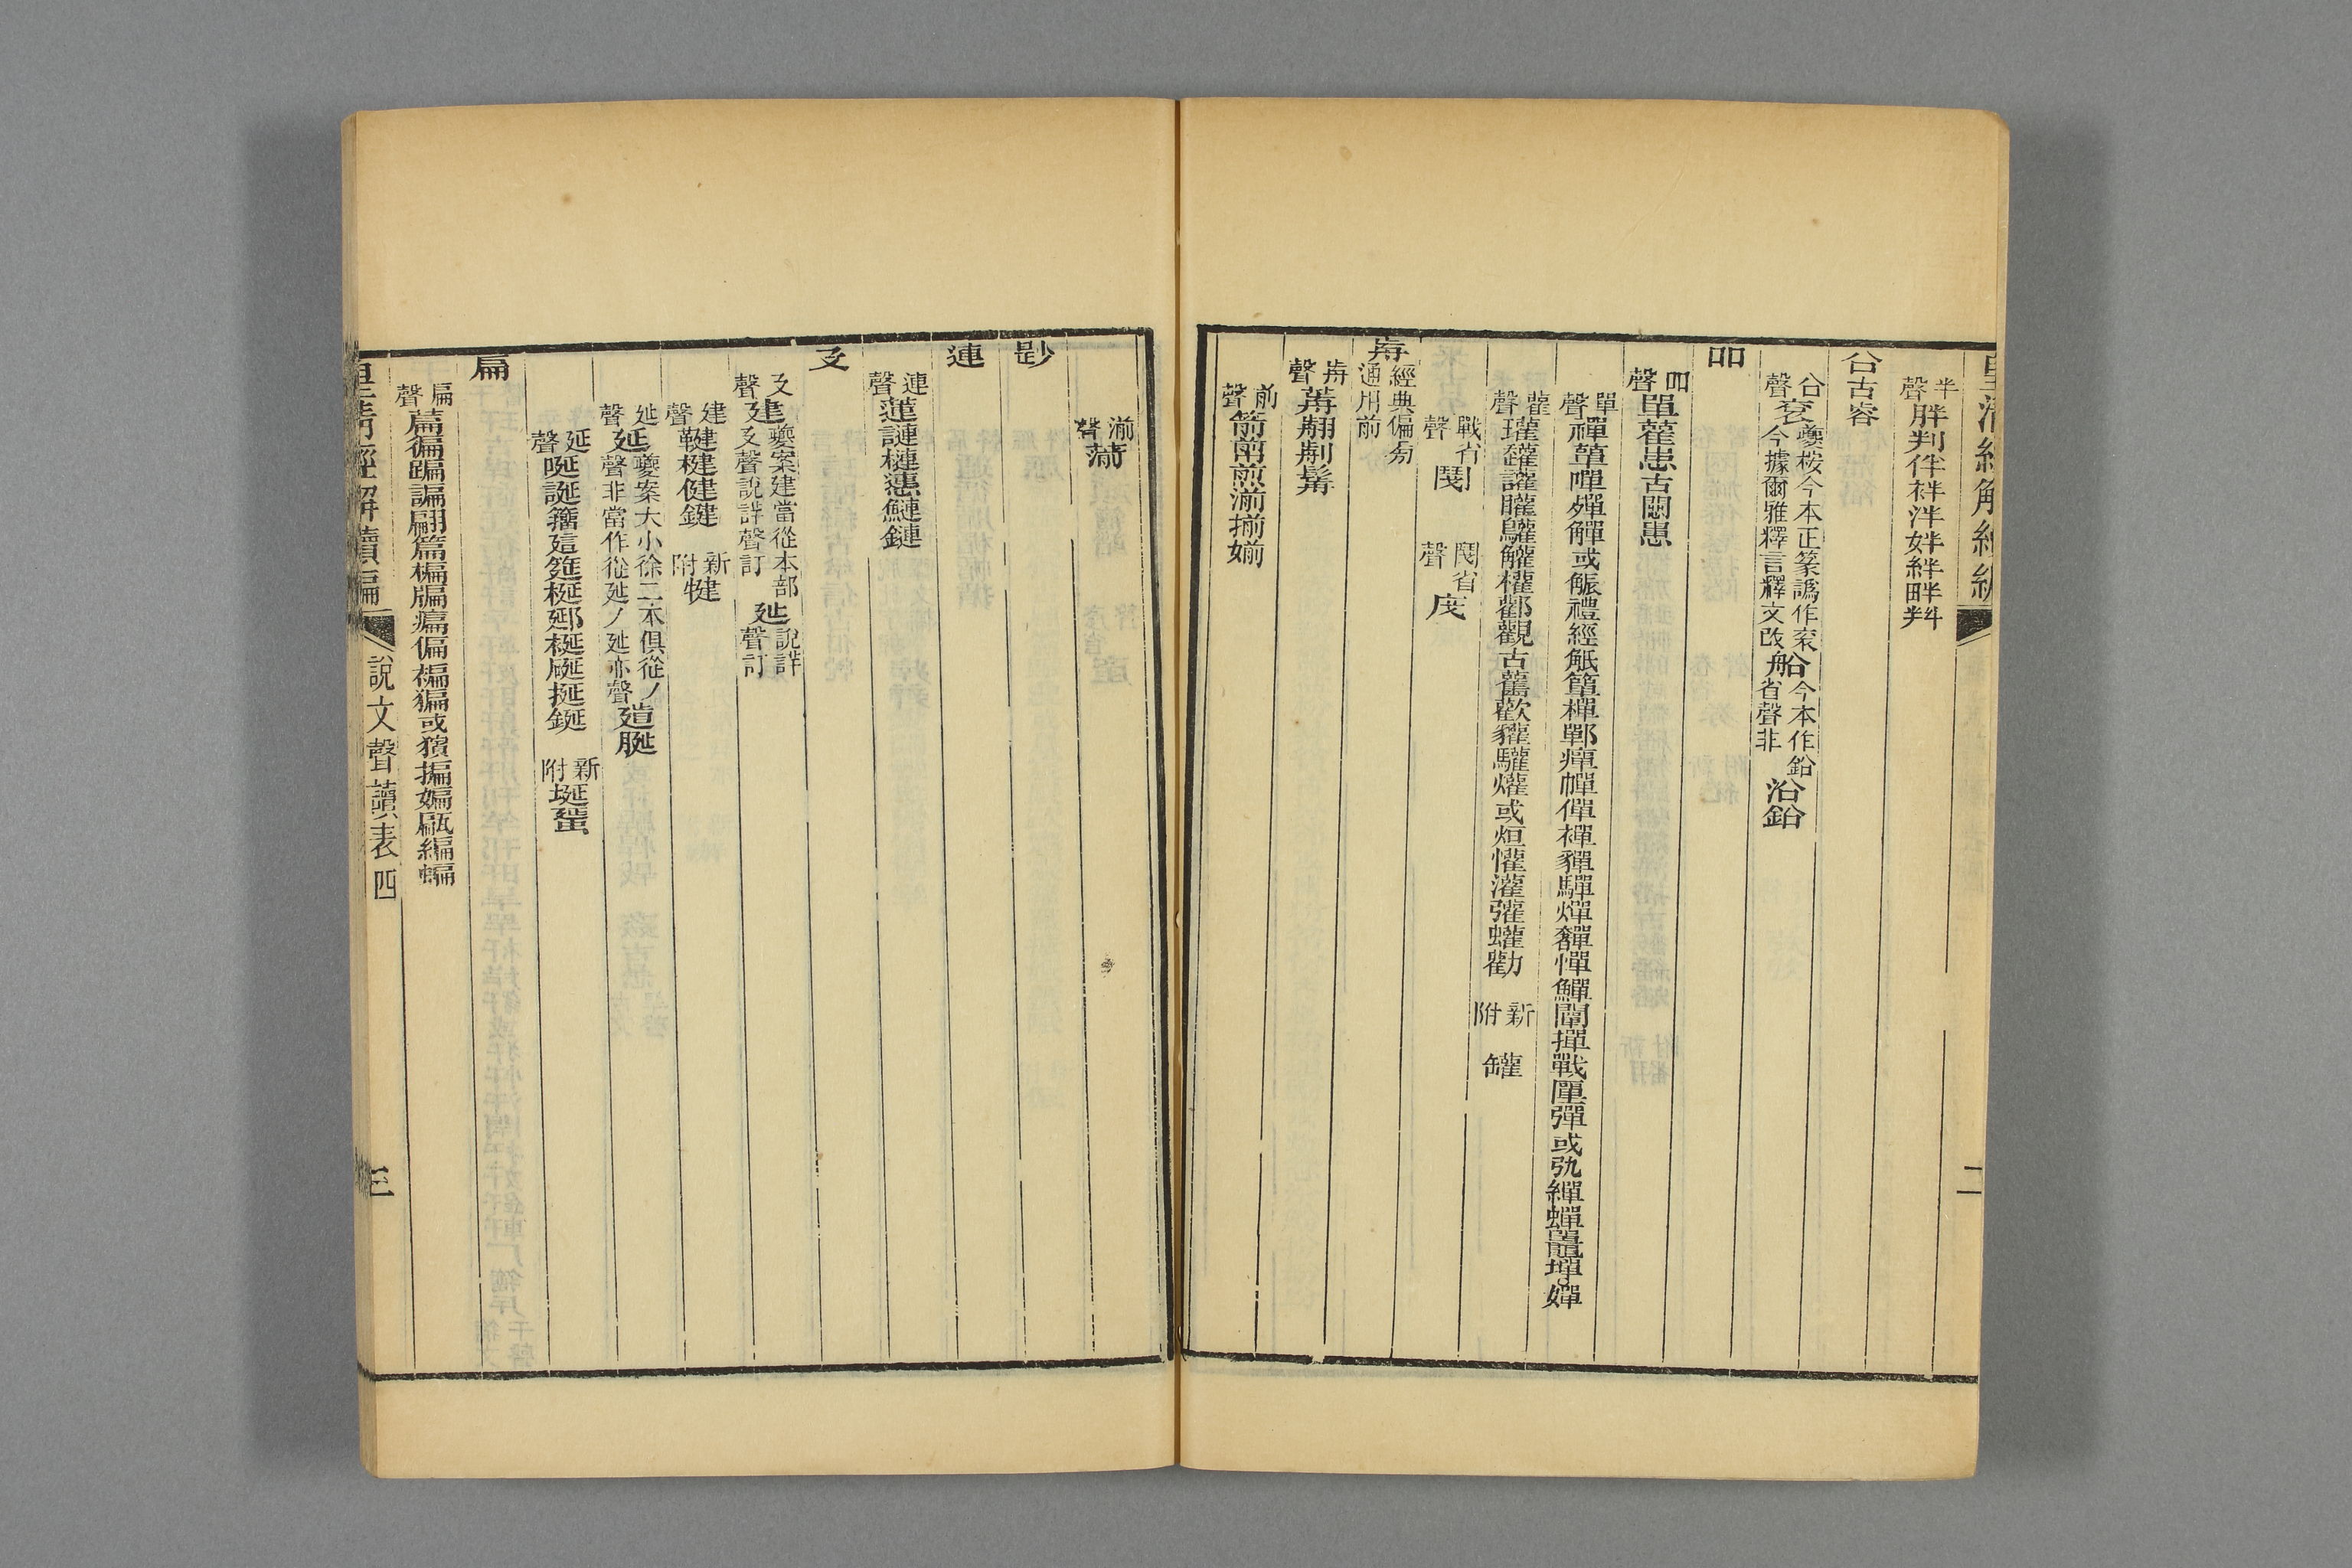 皇清經解續編
二
半聲胖判伴袢泮姅絆畔料
㕣古容
㕣聲袞夔桉今本正篆譌作衮今據爾雅釋言釋文改船今本作鉛省聲非沿鉛
吅
吅聲單雚患古關患
單聲禪蕇嘽殫觶或觗禮經觝簞樿鄲癉幝僤襌貚驒燀奲憚鱓闡撣戰匰彈或𢎫繟蟬鼉墠嬋
雚聲瓘讙矔鸛觀權酄觀古歡貛驩爟或烜懽灌彏蠸勸 新附 罐
戰省聲鬫 閔省聲
歬經典偏㫄通用前
歬聲翦鬋
前聲箭煎湔揃媊
湔聲
尟
連
連聲蓮謰槤慩鰱鏈
廴
廴聲建夔案建當從本部廴聲說詳聲訂㢟說詳聲訂
建聲鞬楗健鍵 新附犍
㢟聲延夔案大小徐二本俱從丿聲非當作從㢟丿㢟亦聲
延聲唌誕筵梴郔涎挻鋋 新附埏蜑
扁
扁聲萹徧蹁諞翩篇楄牑㾫偏褊猵或獱揙媥甂編蝙
皇清經解續編
說文聲讀表四
三